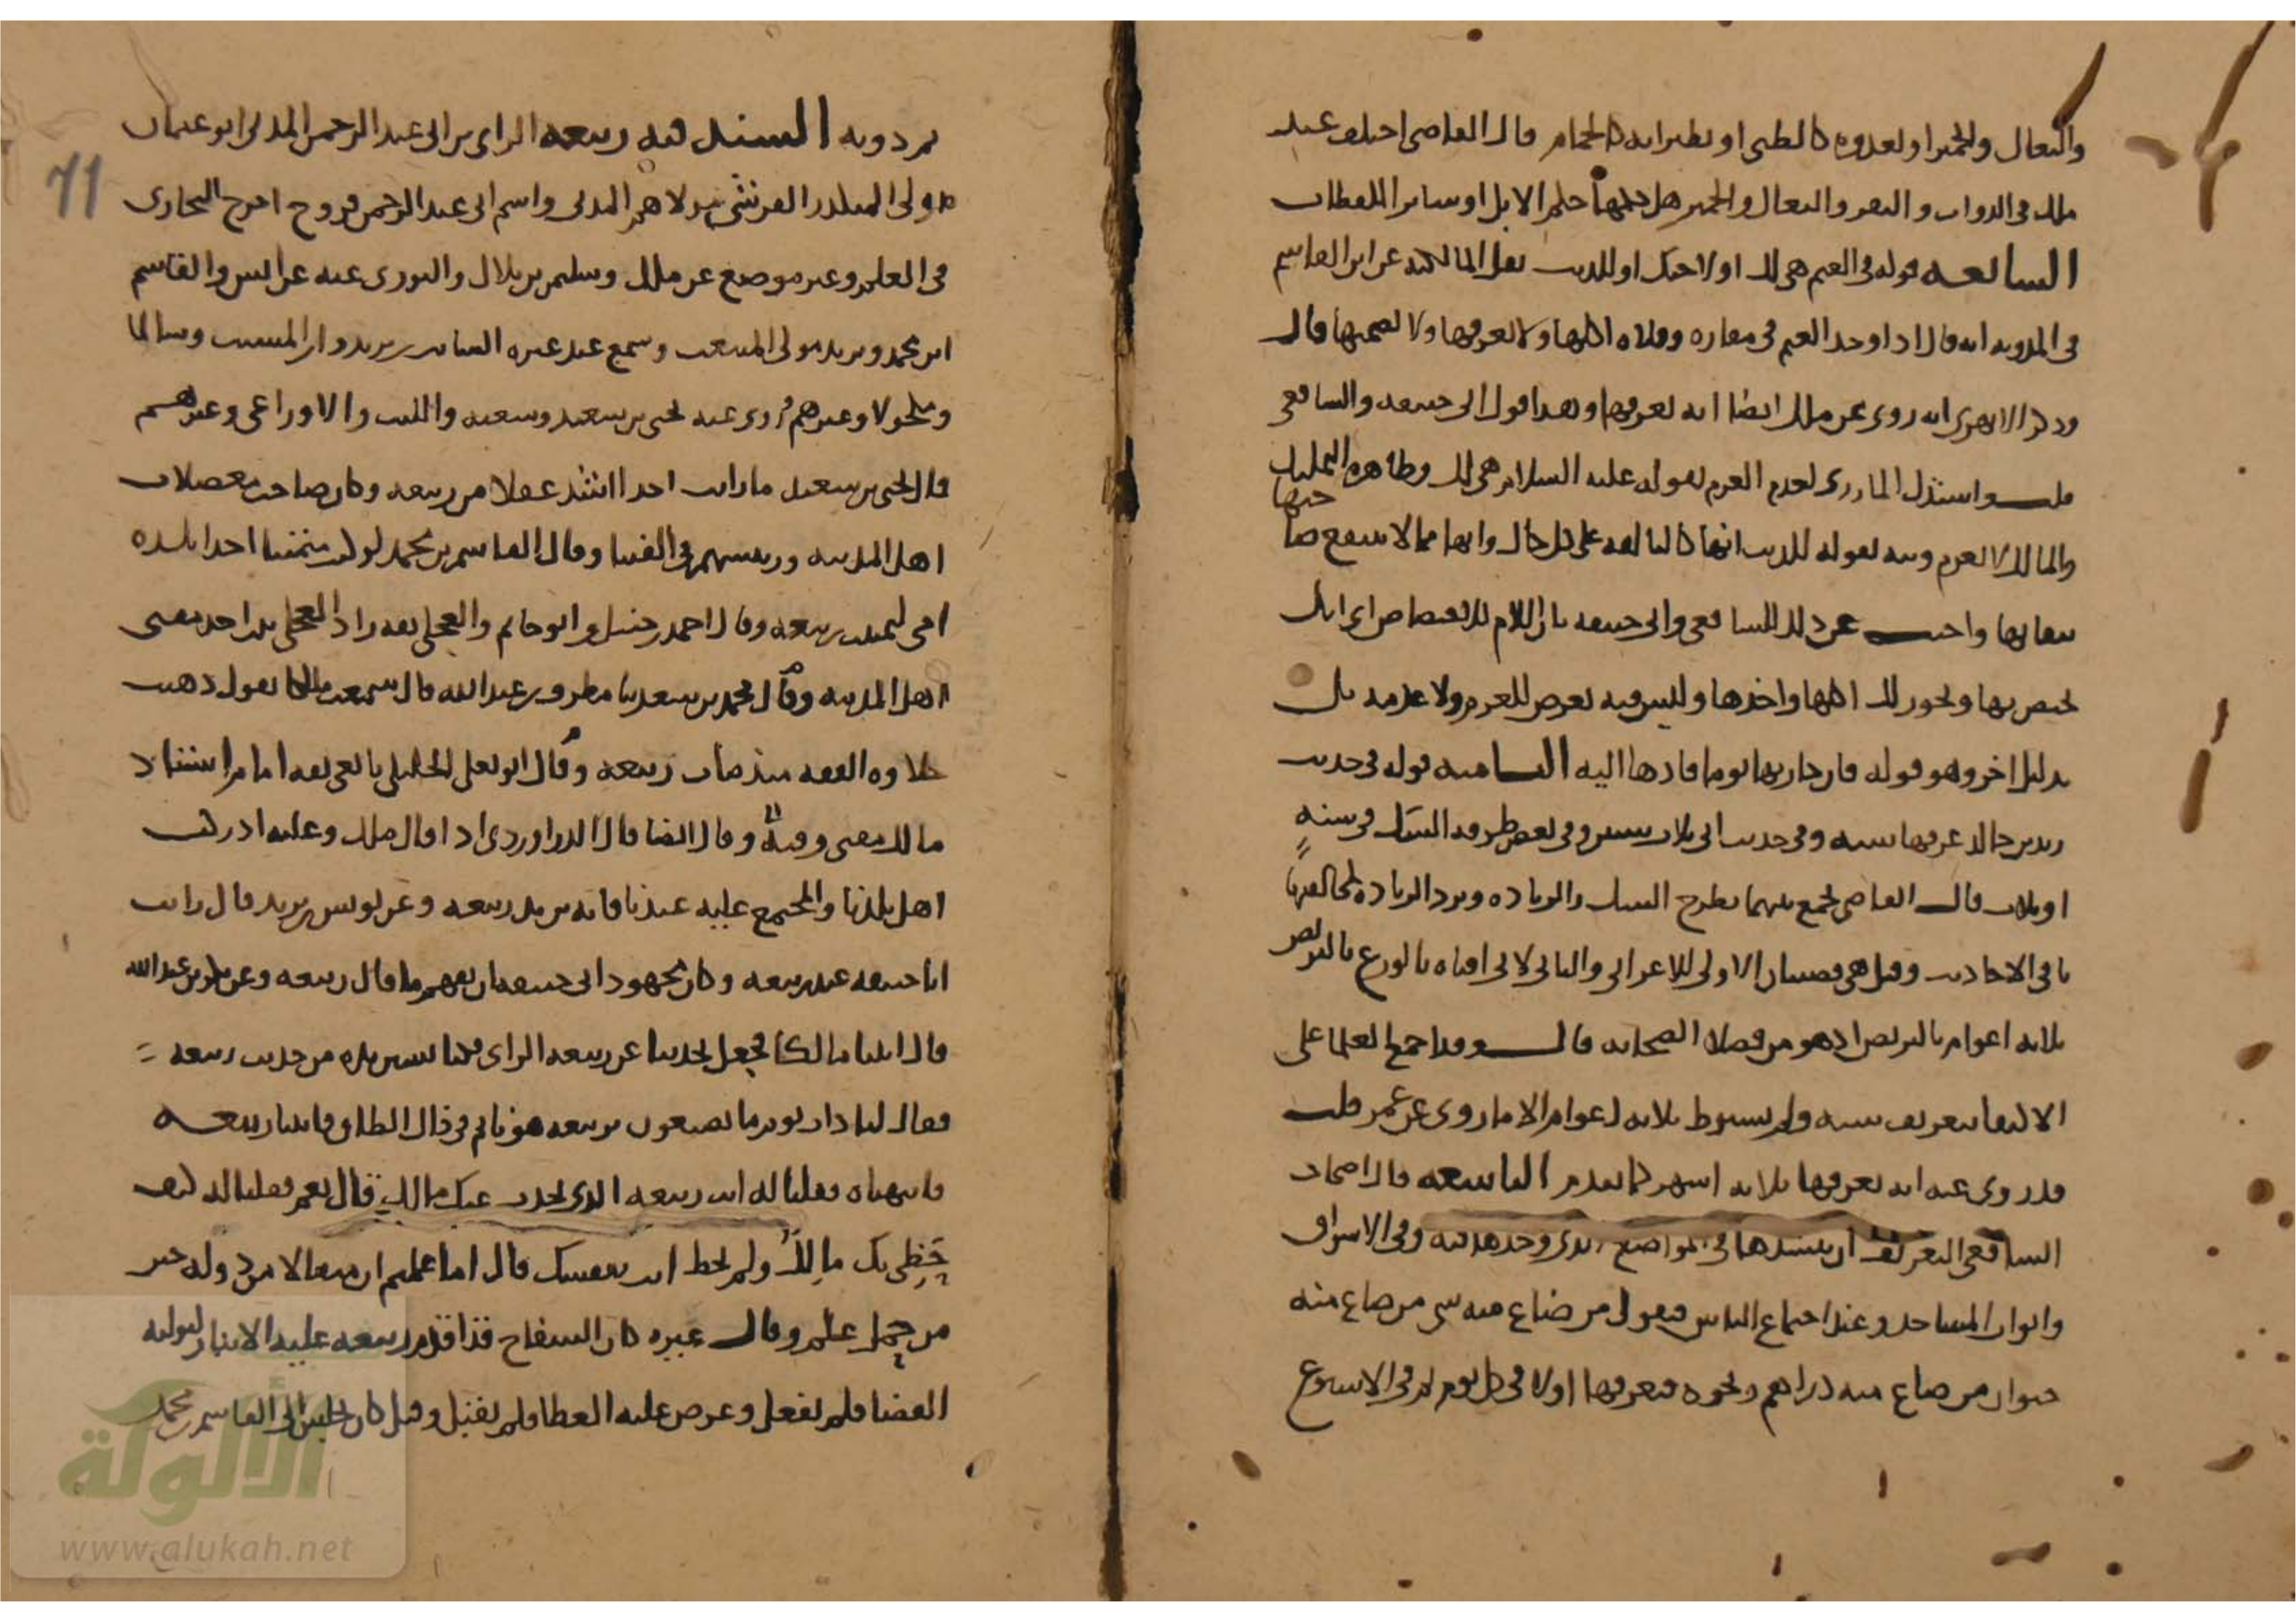 والبغال والحمير او لعدوه كالظبى او لطيرانه كالحمام قال القاضى اختلف عند
ملك فى الدواب والبقر والبغال والحمير هل حكمها حكم الابل او سائر اللقطات
السابعه قوله فى الغنم هى لك او لاخيك او للذيب نقل المالكيه عن ابن القاسم
فى المدونه انه قال اذا وجد الغنم فى مفازه وفلاه اكلها ولا يعرفها ولا يضمنها قال
وذكر الابهرى انه روى عن ملك ايضا انه يعرفها وهذا قول ابى حنيفه والشافعى
قلت واستدل المازرى لعدم الغرم بقوله عليه السلام هى لك وظاهره التمليك
والمالك لا يغرم ونبه بقوله للذيب انها كالتالفه على كل حال وانها مما لا ينتفع صاحبها
ببقائها واجيب عن ذلك للشافعى وابى حنيفه بان اللام للاختصاص اى انك
تختص بها ويجوز لك اكلها واخذها وليس فيه تعرض للغرم ولا عدمه بل
بدليل اخر وهو قوله فان جا ربها يوما فادها اليه الثامنه قوله فى حديث
زيد بن خالد عرفها سنه وفى حديث ابى ثلاث سنين وفى بعض طرقه الشك فى سنه
او ثلاث قال القاضى يجمع بينهما بطرح الشك والزياده وترد الزياده لمخالفتها
باقى الاحاديث وقيل هى قصتان الاولى للاعرابى والثانى لابى افتاه بالورع بالتربص
ثلاثه اعوام بالتربص اذ هو من فضلا الصحابه قال وقد اجمع العلما على
الاكتفا بتعريف سنه ولم يشترط ثلاثه اعوام الا ما روى عن عمر قلت
قد روى عنه انه يعرفها ثلاثه اشهر كما تقدم التاسعه قال اصحاب
الشافعى التعريف ان ينشدها فى المواضع الذى وجدها فيه وفى الاسواق
وابواب المساجد وعند اجتماع الناس فيقول من ضاع منه شى من ضاع منه
حيوان من ضاع منه دراهم ونحوه فيعرفها اولا فى كل يوم ثم فى الاسبوع
ثم دونه السند فيه ربيعه الراى بن ابى عبد الرحمن المدنى ابو عثمان
مولى المنكدر القرشى مولاهم المدنى واسم ابى عبد الرحمن فروخ اخرج البخارى
فى العلم وغير موضع عن ملك وسليمن بن بلال والثورى عنه عن انس والقاسم
ابن محمد ويزيد مولى المنبعث وسمع عند غيره السائب بن يزيد وابن المسيب وسالما
ومكحولا وغيرهم روى عنه يحيى بن سعيد وشعبه والليث والاوزاعى وغيرهم
قال يحيى بن سعيد ما رايت احدا اشد عقلا من ربيعه وكان صاحب معضلات
اهل المدينه ورييسهم فى الفتيا وقال القاسم بن محمد لو كنت متمنيا احدا تلده
امى لتمنيت ربيعه وقال احمد بن حنبل وابو حاتم والعجلى ثقه زاد العجلى بلد احد مفتى
اهل المدينه وقال محمد بن سعد نا مطرف بن عبد الله قال سمعت مالكا يقول ذهبت
حلاوه الفقه منذ مات ربيعه وقال ابو يعلى الخليلى تابعى ثقه امام استاذ
مالك مفتى وقته وقال ايضا قال الدراوردى اذا قال ملك وعليه ادركت
اهل بلدنا والمجتمع عليه عندنا فانه يريد ربيعه وعن يونس بن يزيد قال رايت
ابا حنيفه عند ربيعه وكان مجهود ابى حنيفه ان يفهم ما قال ربيعه وعن بكر بن عبد الله
قال اتينا مالكا فجعل يحدثنا عن ربيعه الراى فكنا نستزيده من حديث ربيعه
فقال لنا ذات يوم ما تصنعون بربيعه هو نائم فى ذاك الطاق فاتينا ربيعه
فانبهناه فقلنا له انت ربيعه الذى يحدث عنك مالك قال نعم فقلنا له كيف
حظى بك مالك ولم تحظ انت بنفسك قال اما علمتم ان مثقالا من دوله خير
من حمل علم وقال غيره كان السفاح قد اقدم ربيعه عليه الانبار ليوليه
القضا فلم يفعل وعرض عليه العطا فلم يقبل وقيل كان يجلس الى القاسم بن محمد
71
الألوكة
www.alukah.net